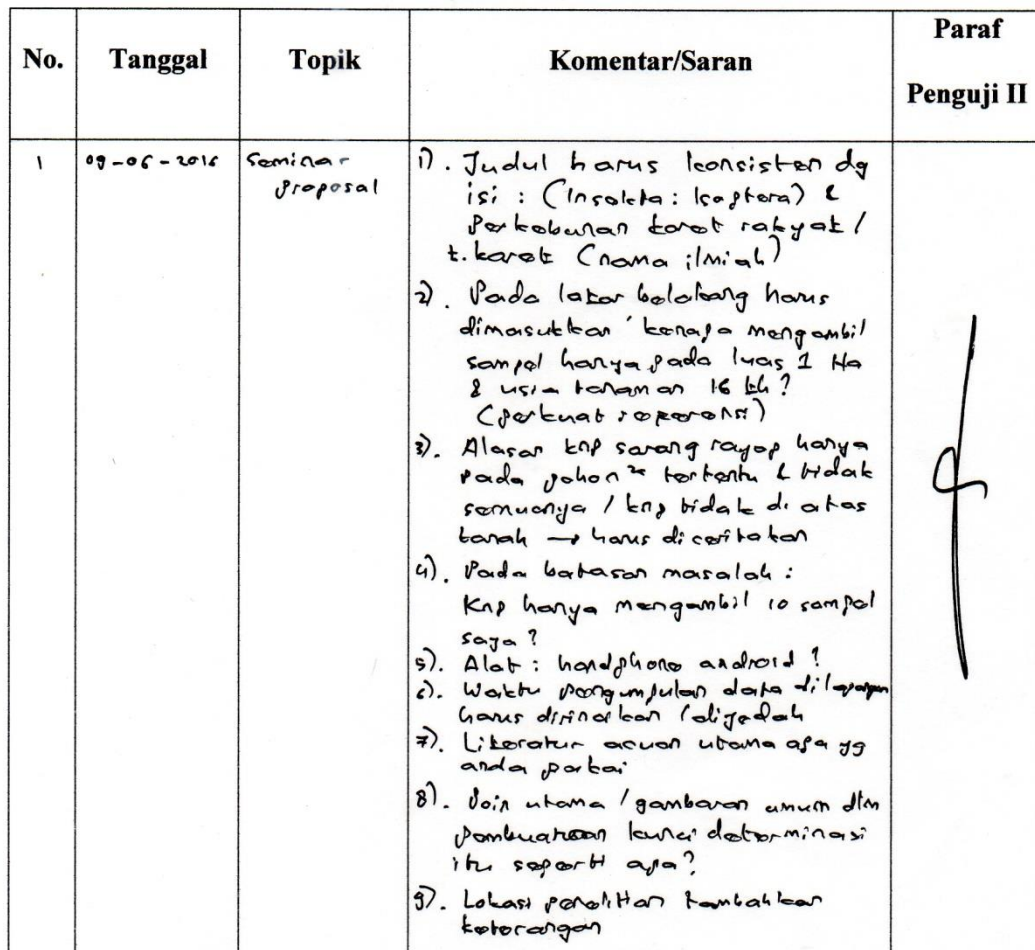 No. Tanggal Topik Komentar/Saran Paraf Penguji II
1 09-06-2016 Seminar proposal
1). Judul harus konsisten dg
isi : (Insekta : Isoptera) &
Perkebunan karet rakyat /
t. karet (nama ilmiah)
2). Pada latar belakang harus
dimasukkan kenapa mengambil
sampel hanya pada luas 1 Ha
& usia tanaman 16 th?
(perkuat referensi)
3). Alasan knp sarang rayap hanya
pada pohon² tertentu & tidak
semuanya / knp tidak di atas
tanah → harus diceritakan
4). Pada batasan masalah :
Knp hanya mengambil 10 sampel
saja?
5). Alat : handphone android ?
6). Waktu pengumpulan data dilapangan
harus dirincikan /
7). Literatur acuan utama apa yg
anda pakai
8). Poin utama / gambaran umum dlm
pembuatan kunci determinasi
itu seperti apa?
9). Lokasi penelitian tambahkan
keterangan